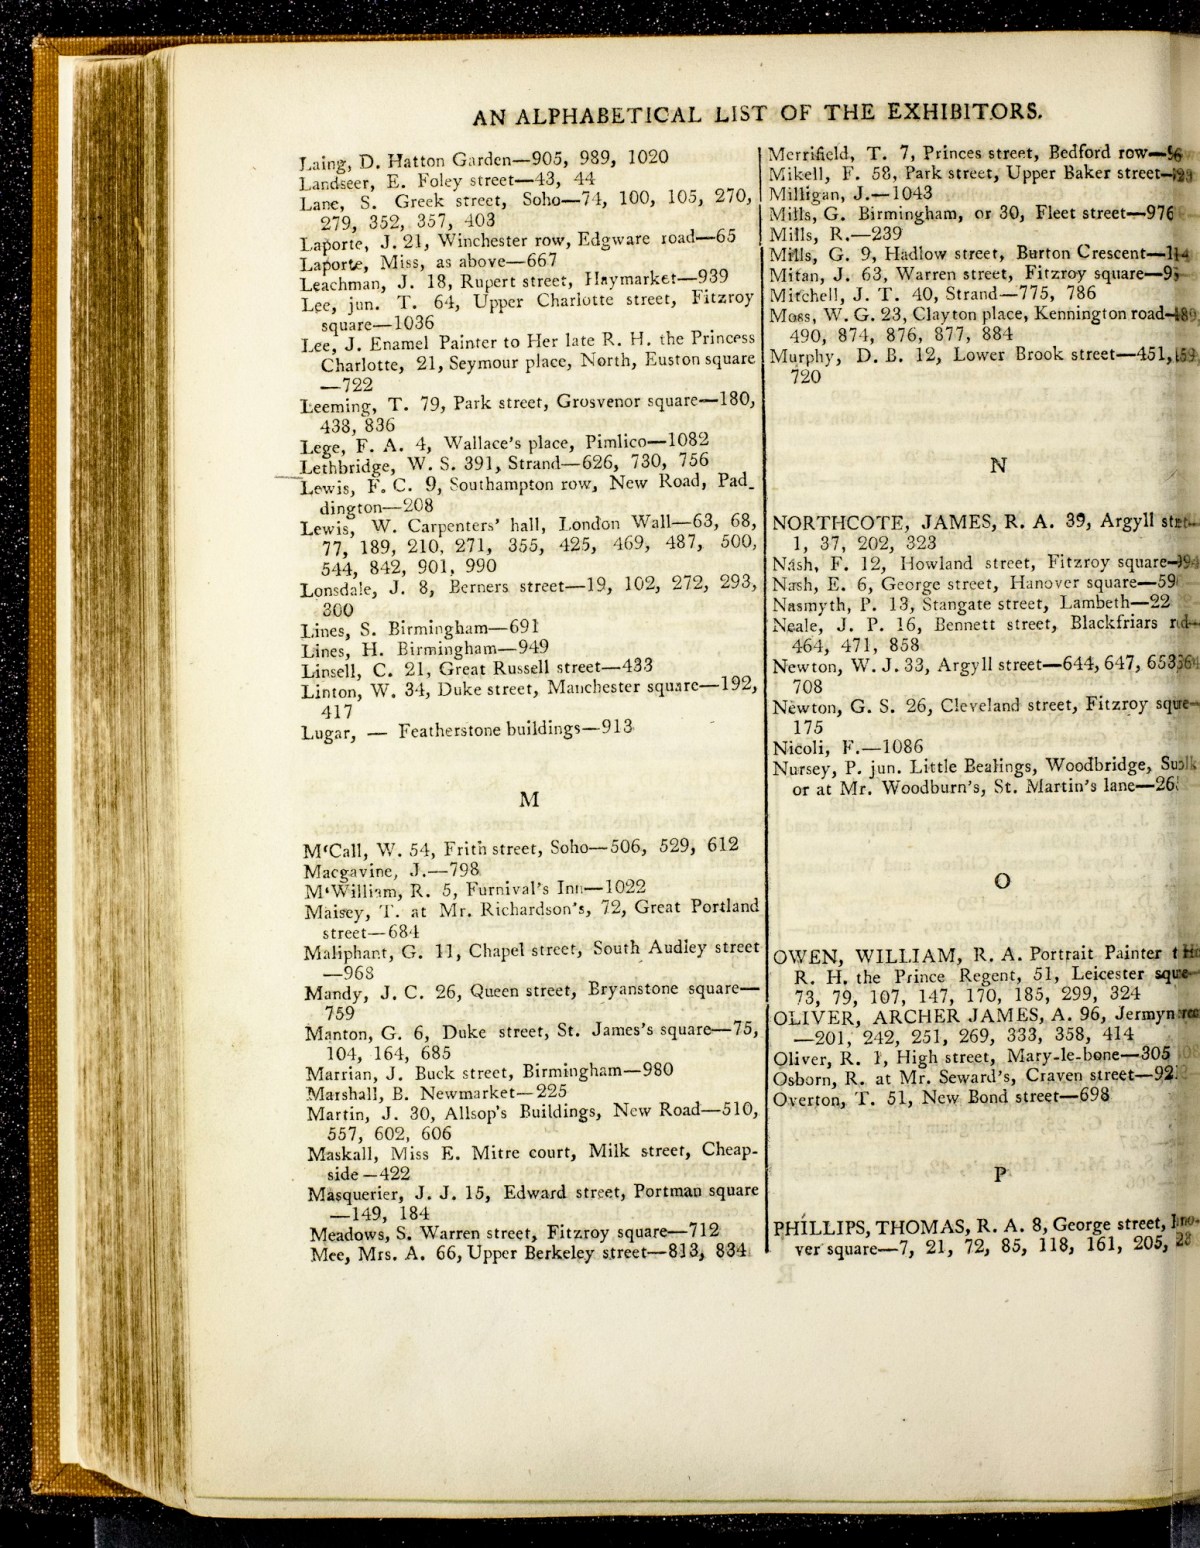 AN ALPHABETICAL LIST OF THE EXHIBITORS.
Laing, D. Hatton Garden—905, 989, 1020
Landseer, E. Foley street—43, 44
Lane, S. Greek street, Soho—74, 100, 105, 270,
279, 352, 357, 403
Laporte, J. 21, Winchester row, Edgware road—65
Laporte, Miss, as above—667
Leachman, J. 18, Rupert street, Haymarket—939
Lee, jun. T. 64, Upper Charlotte street, Fitzroy
square—1036
Lee, J. Enamel Painter to Her late R. H. the Princess
Charlotte, 21, Seymour place, North, Euston square
—722
Leeming, T. 79, Park street, Grosvenor square—180,
438, 836
Lege, F. A. 4, Wallace's place, Pimlico—1082
Lethbridge, W. S. 391, Strand—626, 730, 756
Lewis, F. C. 9, Southampton row, New Road, Pad-
dington—208
Lewis, W. Carpenters' hall, London Wall—63, 68,
77, 189, 210, 271, 355, 425, 469, 487, 500,
544, 842, 901, 990
Lonsdale, J. 8, Berners street—19, 102, 272, 293,
300
Lines, S. Birmingham—691
Lines, H. Birmingham—949
Linsell, C. 21, Great Russell street—433
Linton, W. 34, Duke street, Manchester square—192,
417
Lugar, — Featherstone buildings—913
M
M'Call, W. 54, Frith street, Soho—506, 529, 612
Macgavine, J.—798
M'William, R. 5, Furnival's Inn—1022
Maisey, T. at Mr. Richardson's, 72, Great Portland
street—684
Maliphant, G. 11, Chapel street, South Audley street
—968
Mandy, J. C. 26, Queen street, Bryanstone square—
759
Manton, G. 6, Duke street, St. James's square—75,
104, 164, 685
Marrian, J. Buck street, Birmingham—980
Marshall, B. Newmarket—225
Martin, J. 30, Allsop's Buildings, New Road—510,
557, 602, 606
Maskall, Miss E. Mitre court, Milk street, Cheap-
side—422
Masquerier, J. J. 15, Edward street, Portman square
—149, 184
Meadows, S. Warren street, Fitzroy square—712
Mee, Mrs. A. 66, Upper Berkeley street—813, 834
Merrifield, T. 7, Princes street, Bedford row—
Mikell, F. 58, Park street, Upper Baker street—
Milligan, J.—1043
Mills, G. Birmingham, or 30, Fleet street—976
Mills, R.—239
Mills, G. 9, Hadlow street, Burton Crescent—
Mitan, J. 63, Warren street, Fitzroy square—
Mitchell, J. T. 40, Strand—775, 786
Moss, W. G. 23, Clayton place, Kennington road—
490, 874, 876, 877, 884
Murphy, D. B. 12, Lower Brook street—451,
720
N
NORTHCOTE, JAMES, R. A. 39, Argyll
1, 37, 202, 323
Nash, F. 12, Howland street, Fitzroy square—
Nash, E. 6, George street, Hanover square—59
Nasmyth, P. 13, Stangate street, Lambeth—22
Neale, J. P. 16, Bennett street, Blackfriars
464, 471, 858
Newton, W. J. 33, Argyll street—644, 647, 653
708
Newton, G. S. 26, Cleveland street, Fitzroy
175
Nicoli, F.—1086
Nursey, P. jun. Little Bealings, Woodbridge,
or at Mr. Woodburn's, St. Martin's lane—
O
OWEN, WILLIAM, R. A. Portrait Painter
R. H. the Prince Regent, 51, Leicester
73, 79, 107, 147, 170, 185, 299, 324
OLIVER, ARCHER JAMES, A. 96, Jermyn
—201, 242, 251, 269, 333, 358, 414
Oliver, R. 1, High street, Mary-le-bone—305
Osborn, R. at Mr. Seward's, Craven street—
Overton, T. 51, New Bond street—698
P
PHILLIPS, THOMAS, R. A. 8, George street,
ver square—7, 21, 72, 85, 118, 161, 205,